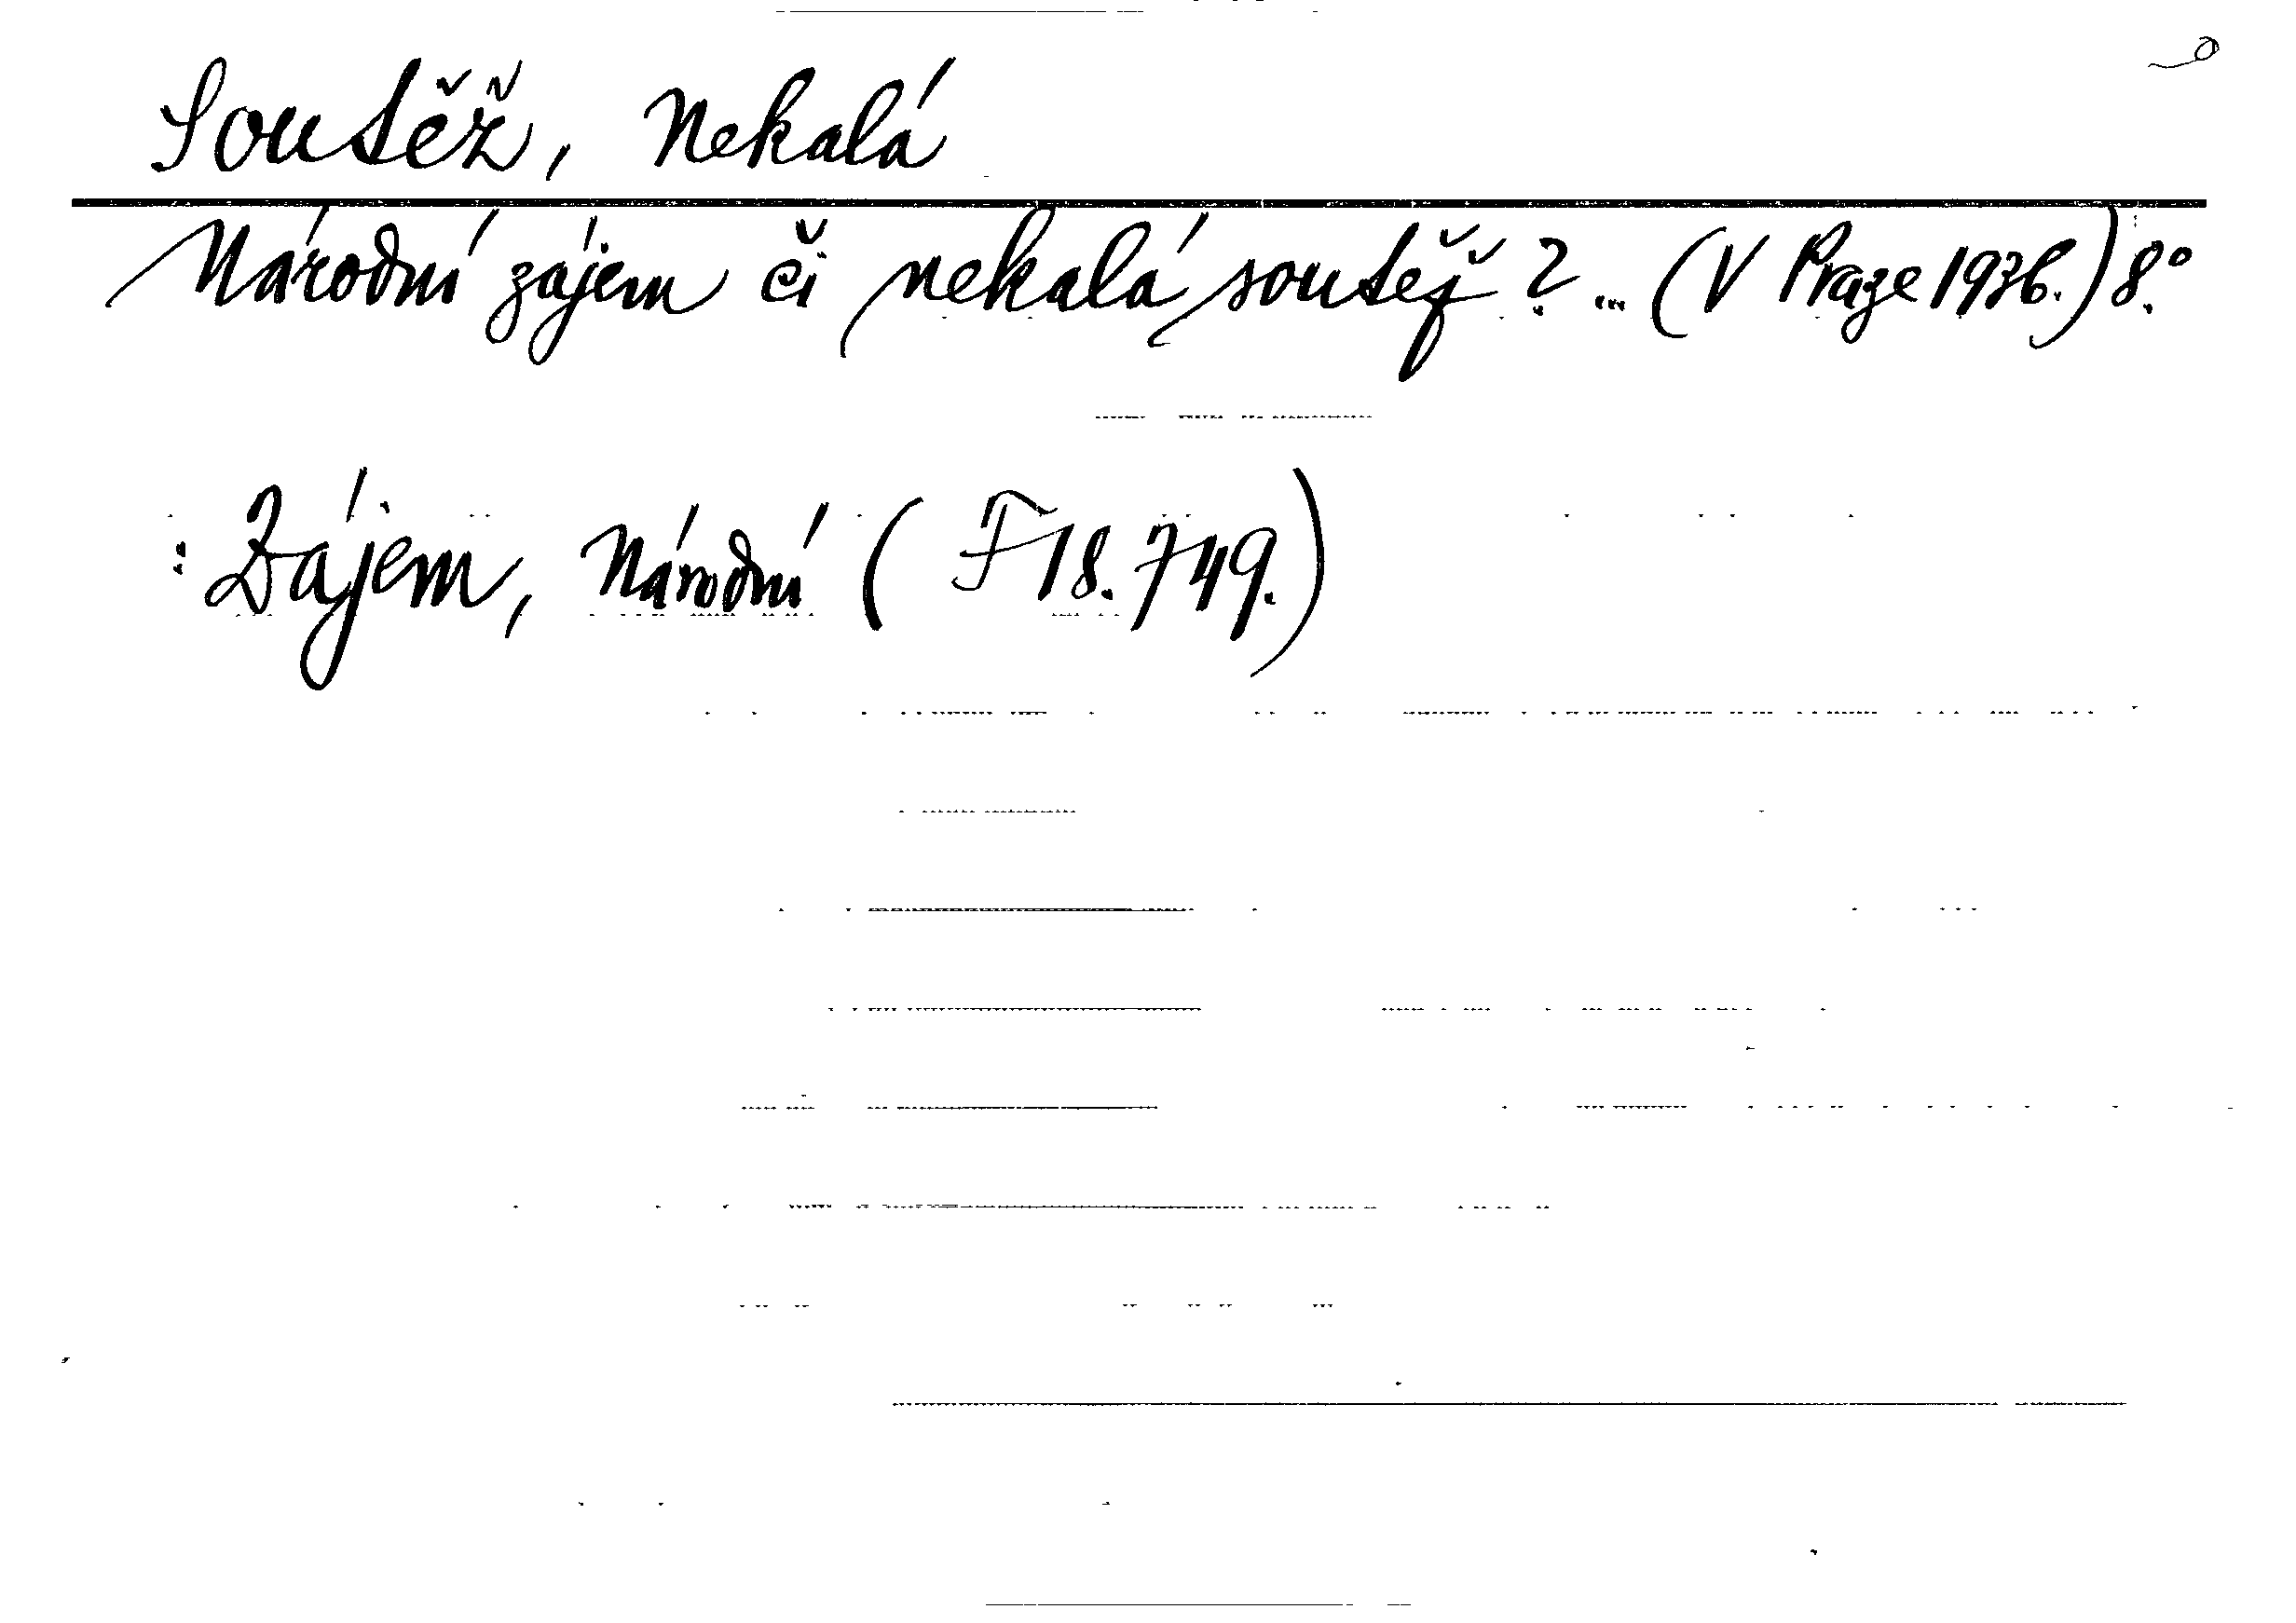 Soutěž, Nekalá
Národní zájem či nekalá soutěž? ... (V Praze 1936.) 8.°
: Zájem, Národní (F 18.749.)